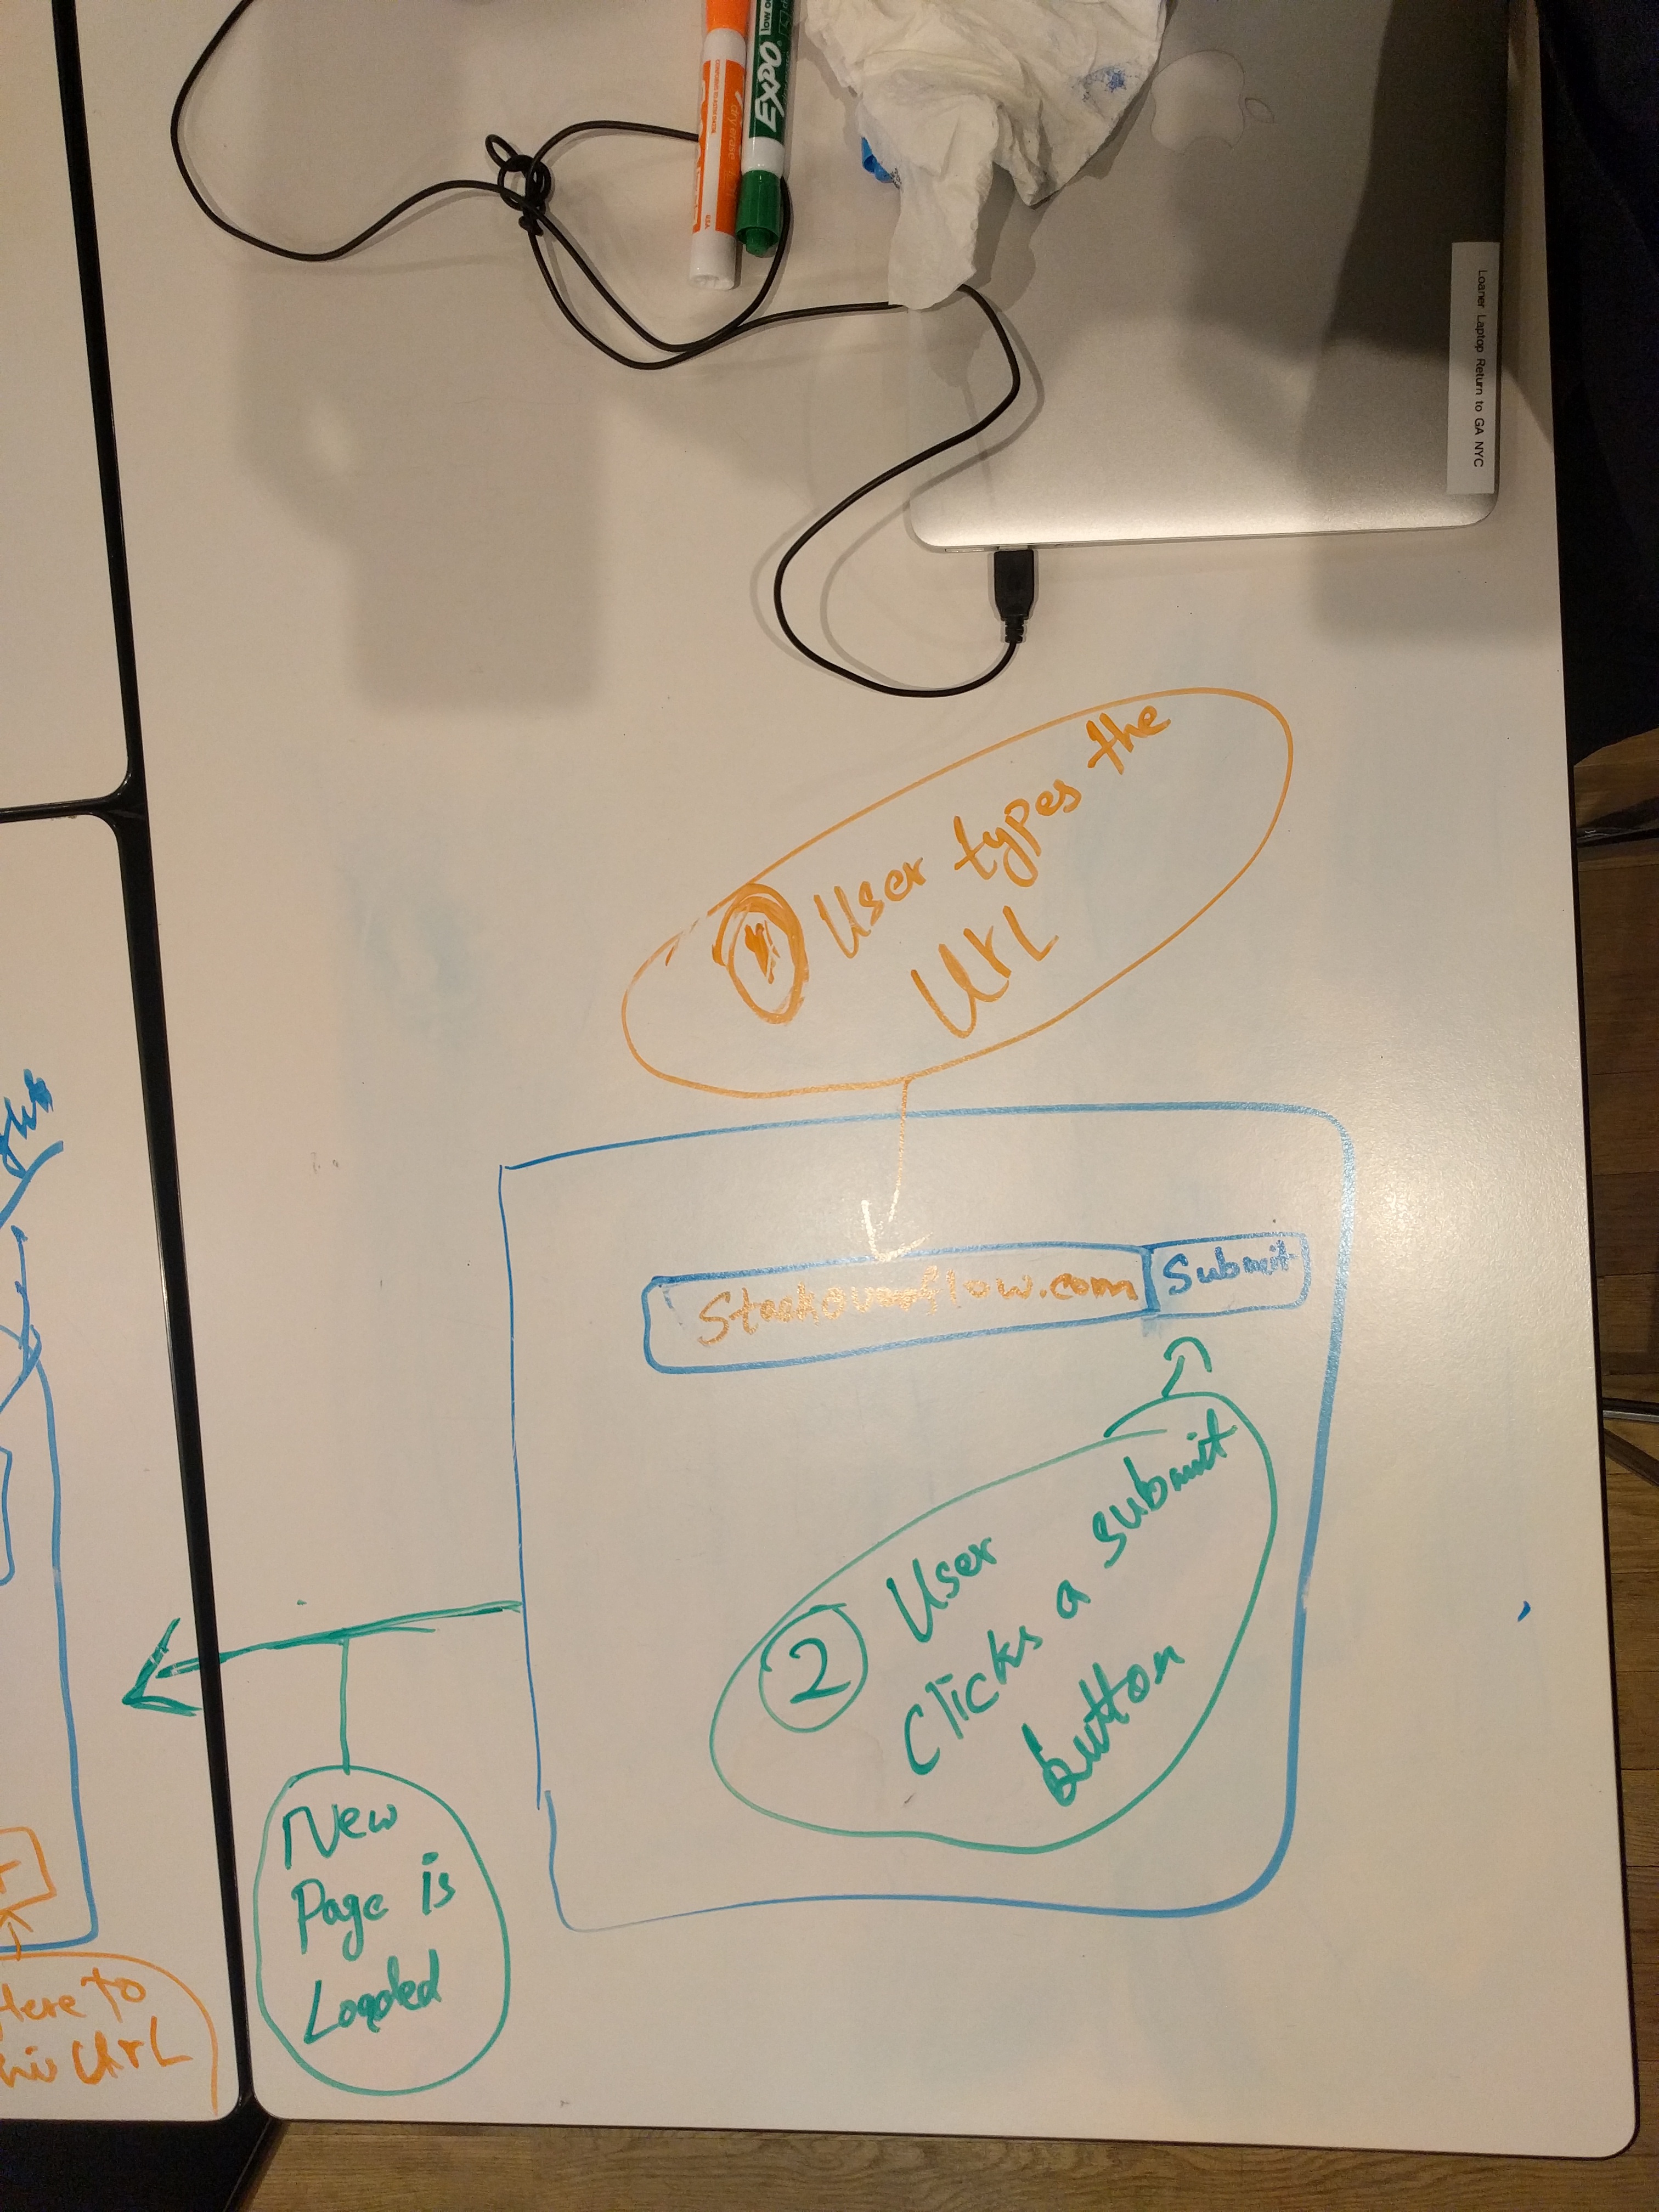 EXPO
low o
dry erase
USA
Loaner Laptop Return to GA NYC
1 User types the
UrL
Stackoverflow.com
Submit
2 User
Clicks a submit
button
New
Page is
Loaded
Here to
UrL